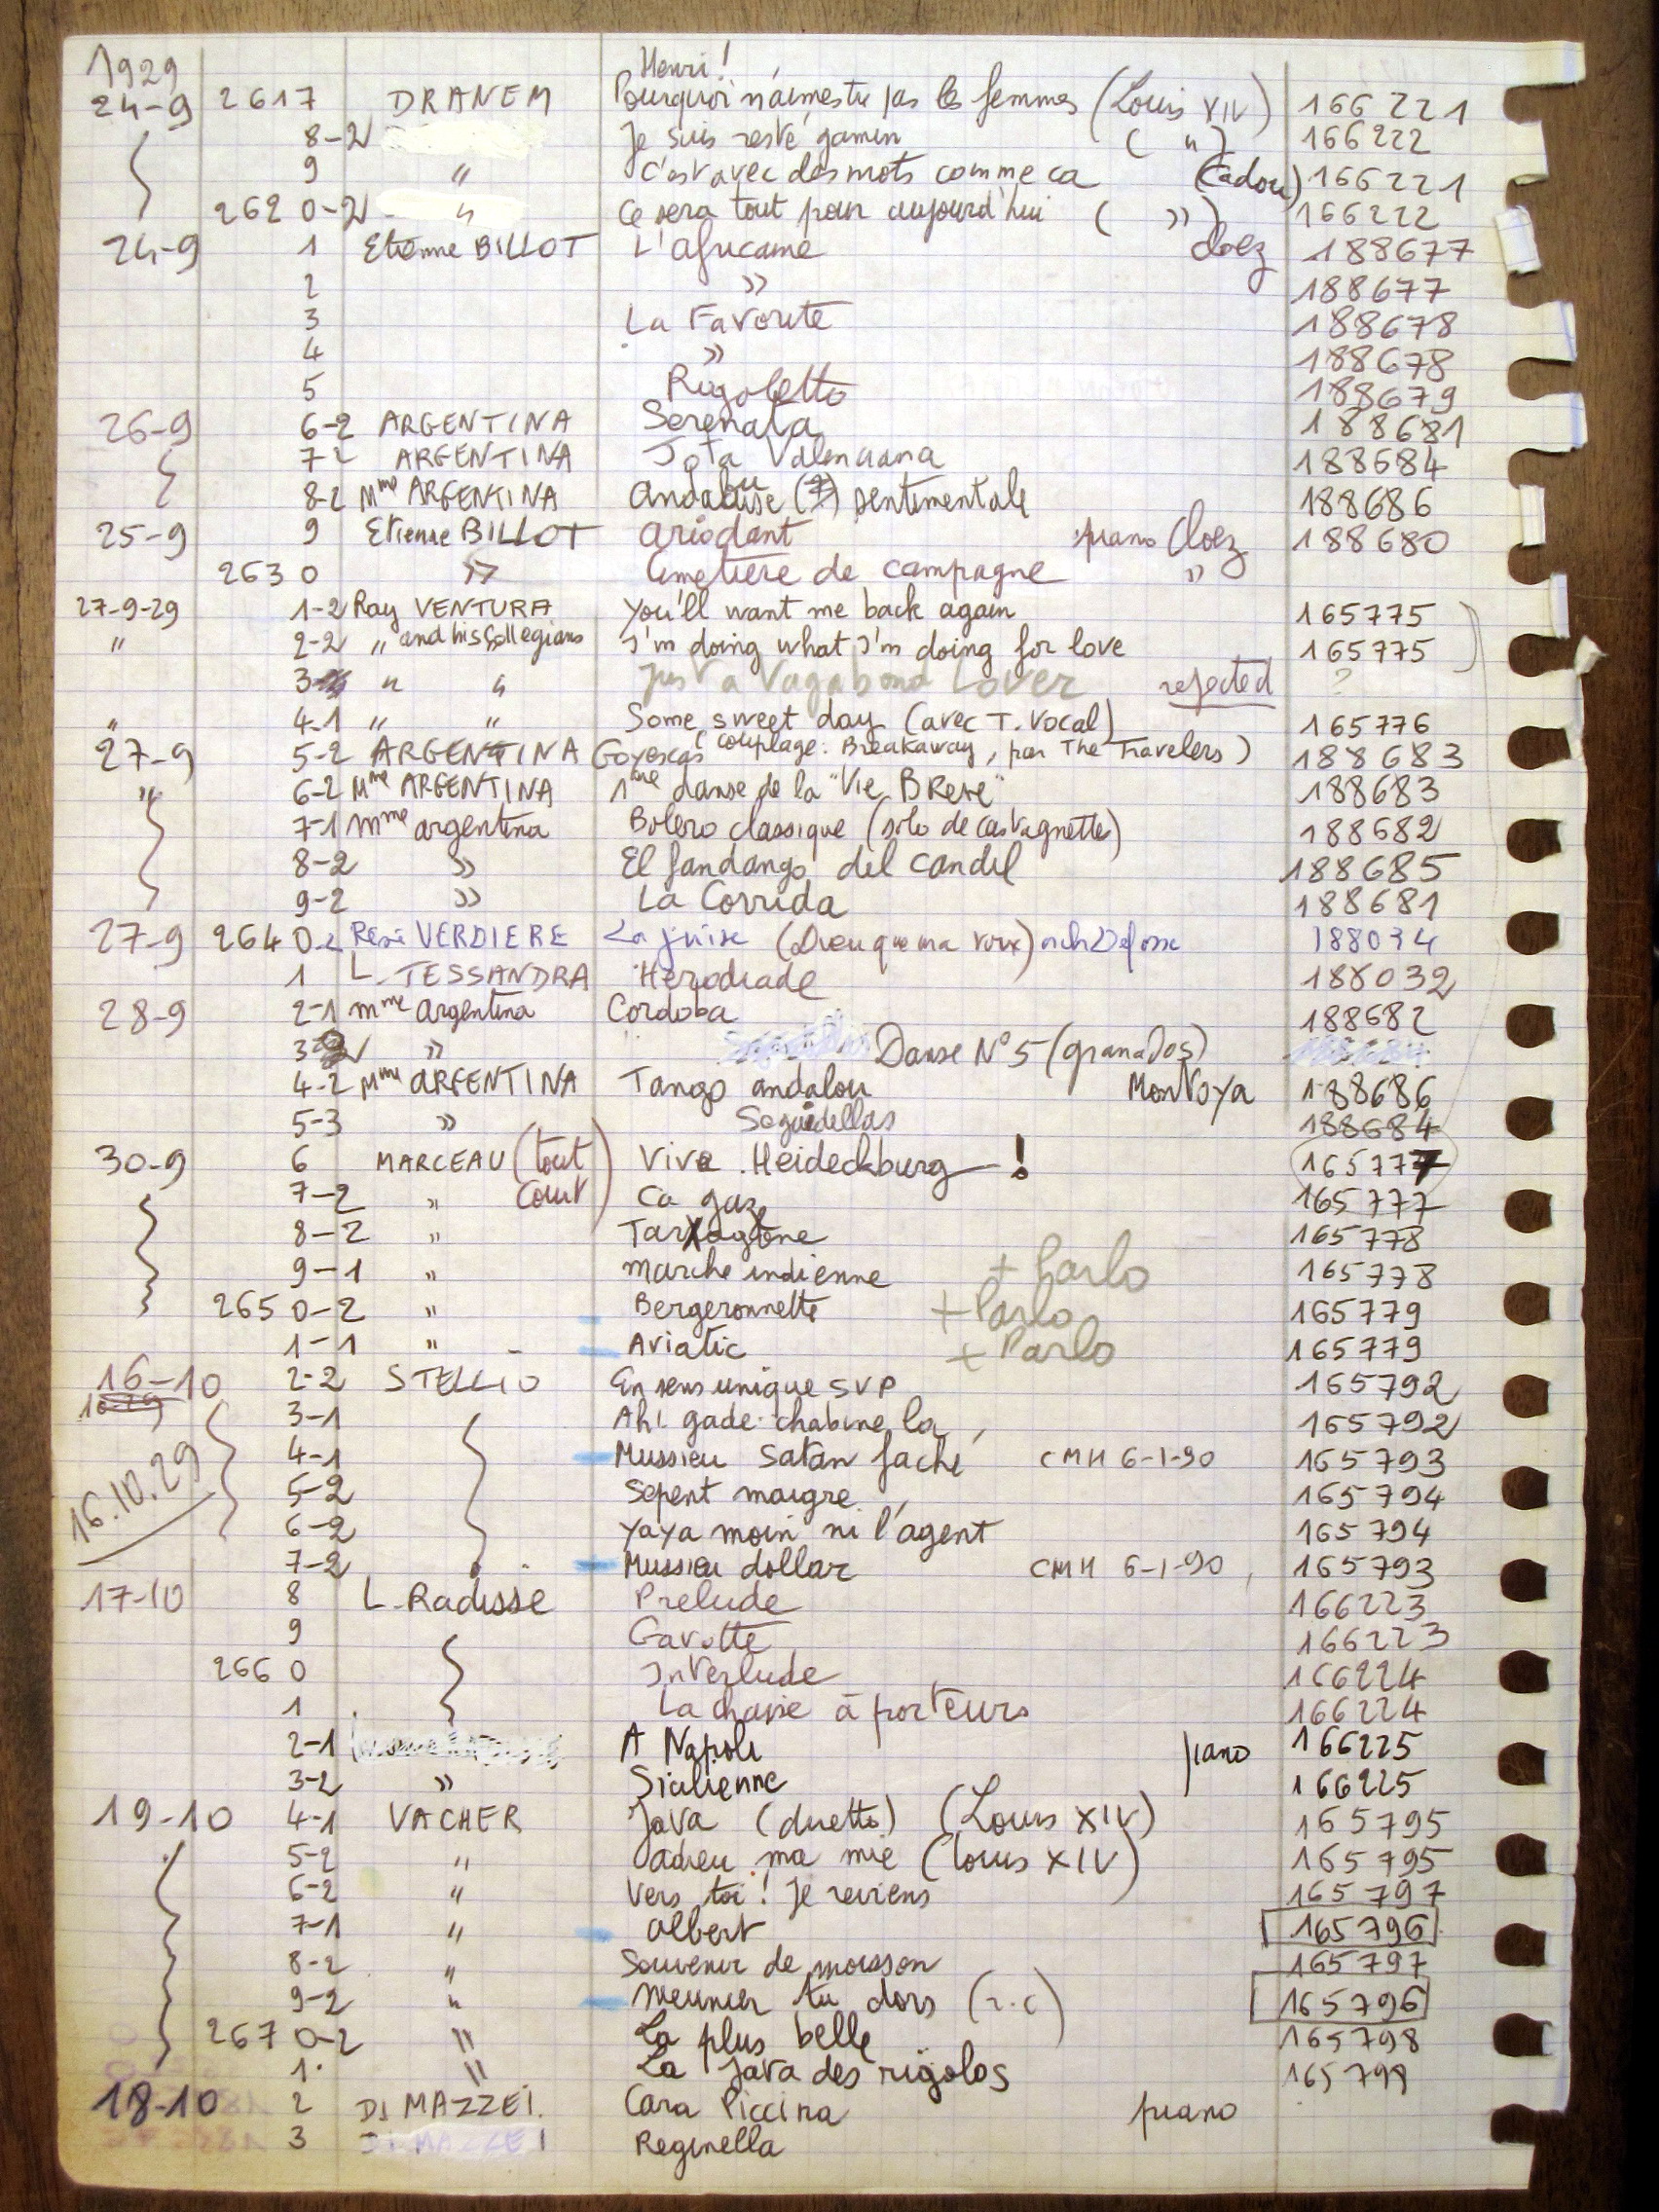 1929 Henri!
24-9 2617 DRANEM Pourquoi n'aimes tu pas les femmes (Louis XIV) 166221
8-2 Je suis resté gamin ( " ) 166222
9 " C'est avec des mots comme ca (Cadou) 166221
2620-2 " Ce sera tout pour aujourd'hui ( » ) 166222
24-9 1 Etienne BILLOT L'africaine Cloez 188677
2 » 188677
3 La Favorite 188678
4 » 188678
5 Rigoletto 188679
26-9 6-2 ARGENTINA Serenata 188681
7-2 ARGENTINA Jota Valenciana 188684
8-2 Mme ARGENTINA sentimentale 188686
25-9 9 Etienne BILLOT Ariodant piano Cloez 188680
2630 » Cimetiere de campagne »
27-9-29 1-2 Ray VENTURA You'll want me back again 165775
" 2-2 " and his Collegians I'm doing what I'm doing for love 165775
3 " " Just a Vagabond Lover rejected ?
" 4-1 " " Some sweet day (avec T. Vocal) 165776
27-9 5-2 ARGENTINA Goyescas (couplage: Breakaway, par The Travelers) 188683
" 6-2 Mme ARGENTINA 1ere danse de la "Vie Breve" 188683
7-1 Mme argentina Bolero classique (solo de castagnettes) 188682
8-2 » El fandango del candil 188685
9-2 » La Corrida 188681
27-9 2640-2 René VERDIERE La juive (Dieu que ma voix) orch Defosse 188034
1 L. TESSANDRA Herodiade 188032
28-9 2-1 Mme Argentina Cordoba 188682
3 » Danse N° 5 (granados)
4-2 Mme ARGENTINA Tango andalou Montoya 188686
5-3 » Seguidillas 188684
30-9 6 MARCEAU (tout Viva Heideckburg ! 165777
7-2 " court) Ca gaz 165777
8-2 " 165778
9-1 " Marche indienne + Parlo 165778
2650-2 " Bergeronnette + Parlo 165779
1-1 " Aviatic + Parlo 165779
16-10 2-2 STELLIO En sens unique SVP 165792
3-1 Ah! gade chabine la 165792
4-1 Mussieu Satan faché CMH 6-1-90 165793
16.10.29 5-2 Sepent maigre 165794
6-2 Yaya moin ni l'agent 165794
7-2 Mussieu dollar CMH 6-1-90 165793
17-10 8 L. Radisse Prelude 166223
9 Gavotte 166223
2660 Interlude 166224
1 La chaise à porteurs 166224
2-1 A Napoli piano 166225
3-2 » Sicilienne 166225
19-10 4-1 VACHER Java (duetto) (Louis XIV) 165795
5-2 " adieu ma mie (Louis XIV) 165795
6-2 " Vers toi! Je reviens 165797
7-1 " Albert 165796
8-2 " Souvenir de moisson 165797
9-2 " Meunier tu dors (r.c) 165796
2670-2 " La plus belle 165798
1 " La Java des rigolos 165798
18-10 2 Di MAZZEI. Cara Piccina piano
3 Di MAZZEI Reginella